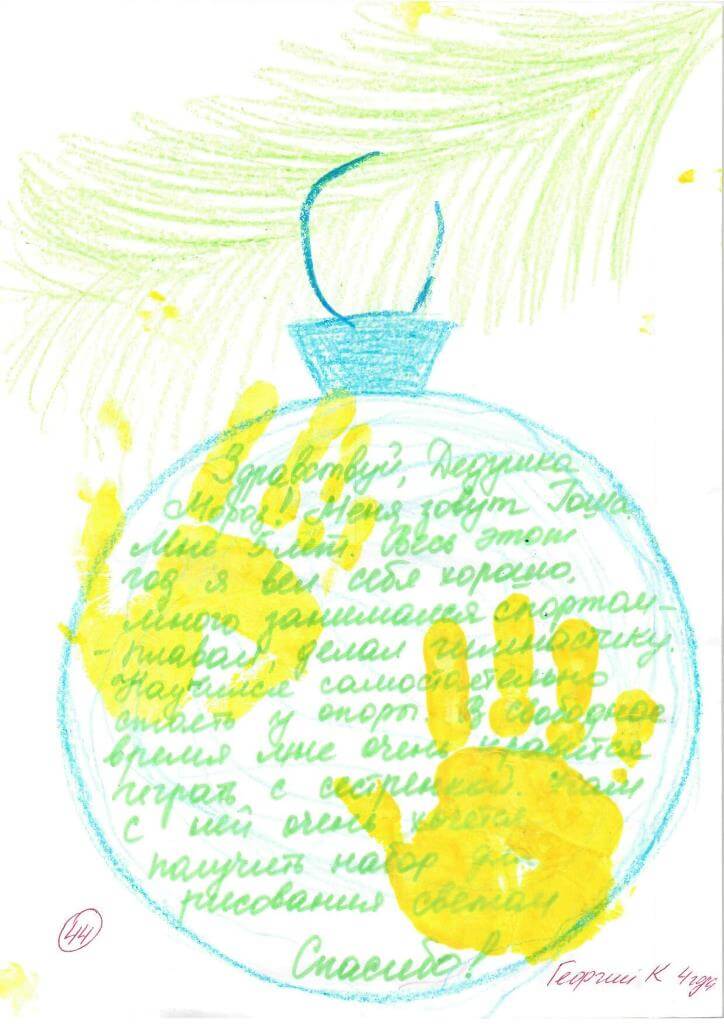 Здравствуй, Дедушка
Мороз! Меня зовут Гоша.
Мне 5 лет. Весь этот
год я вел себя хорошо,
много занимался спортом -
- плавал, делал гимнастику.
Научился самостоятельно
стоять у опоры. В свободное
время мне очень нравится
играть с сестренкой. Нам
с ней очень хочется
получить набор для
рисования светом
Спасибо!
44
Георгий К 4 года